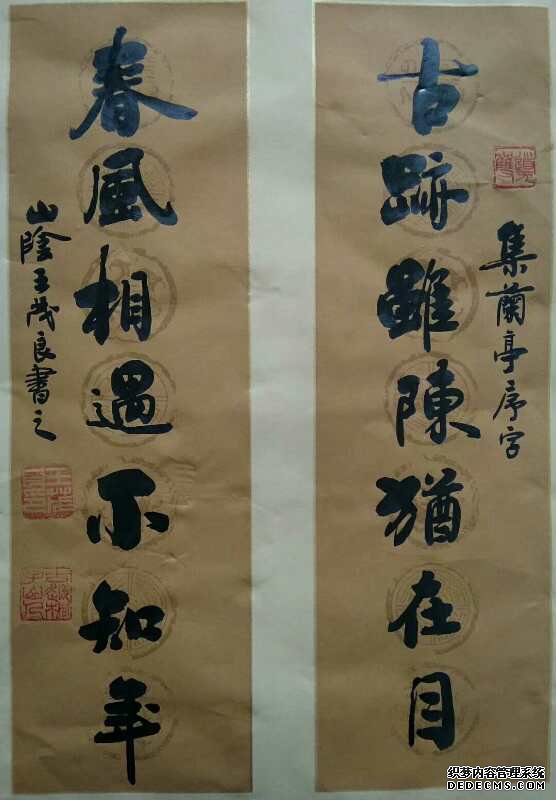 古跡雖陳猶在目
集蘭亭序字
春風相遇不知年
山陰王茂良書之
织梦内容管理系统
DEDECMS.COM